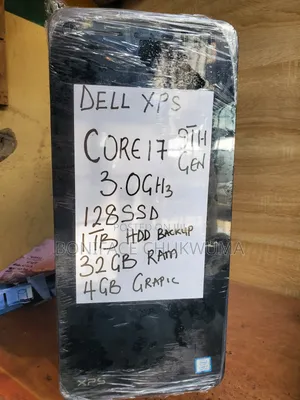 DELL XPS
CORE i7 8TH GEN
3.0GHz
128SSD
1TB HDD BACKUP
POSTED ON
BONIFACE CHUKWUMA
32GB RAM
4GB GRAPIC
XPS